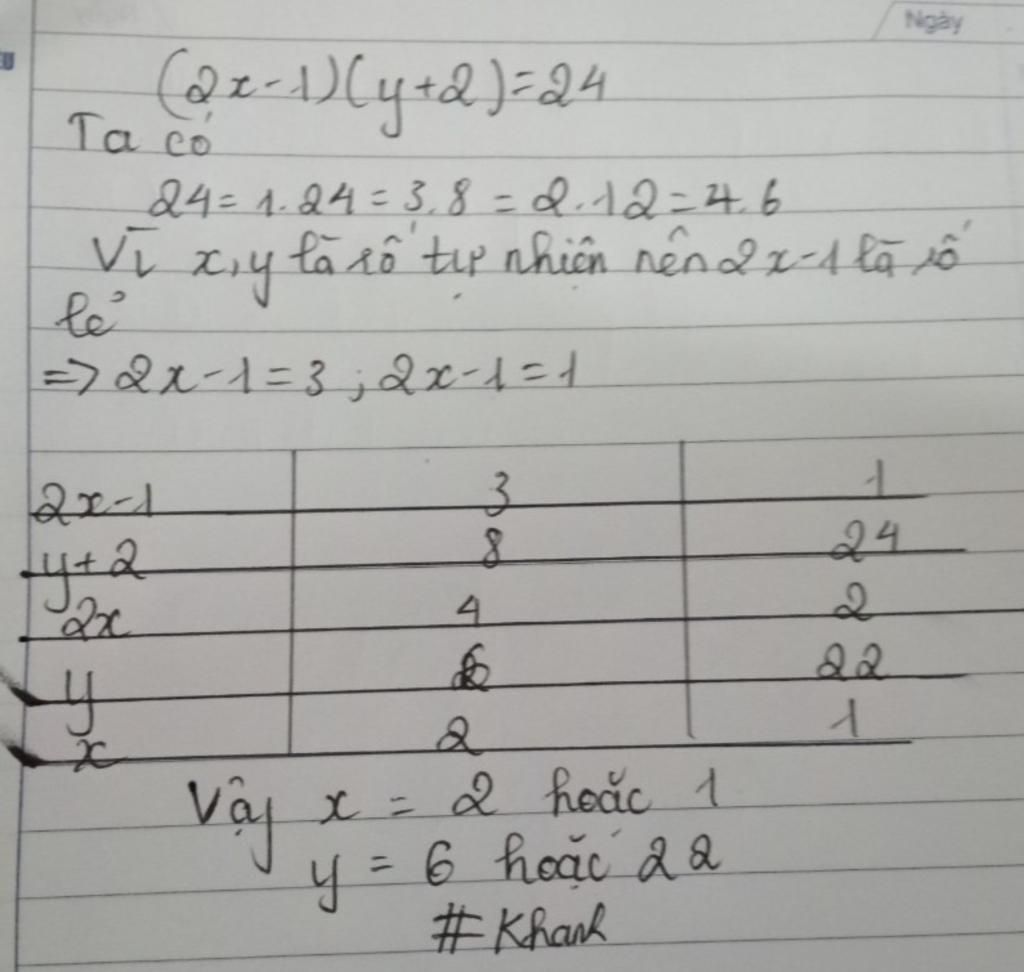 Ngày
(2x-1)(y+2)=24
Ta có
24=1.24=3.8=2.12=4.6
Vì x,y là số tự nhiên nên 2x-1 là số
lẻ
=> 2x-1=3 ; 2x-1=1
2x-1 3 1
y+2 8 24
2x 4 2
y 6 22
x 2 1
Vậy x = 2 hoặc 1
y = 6 hoặc 22
# Khanh